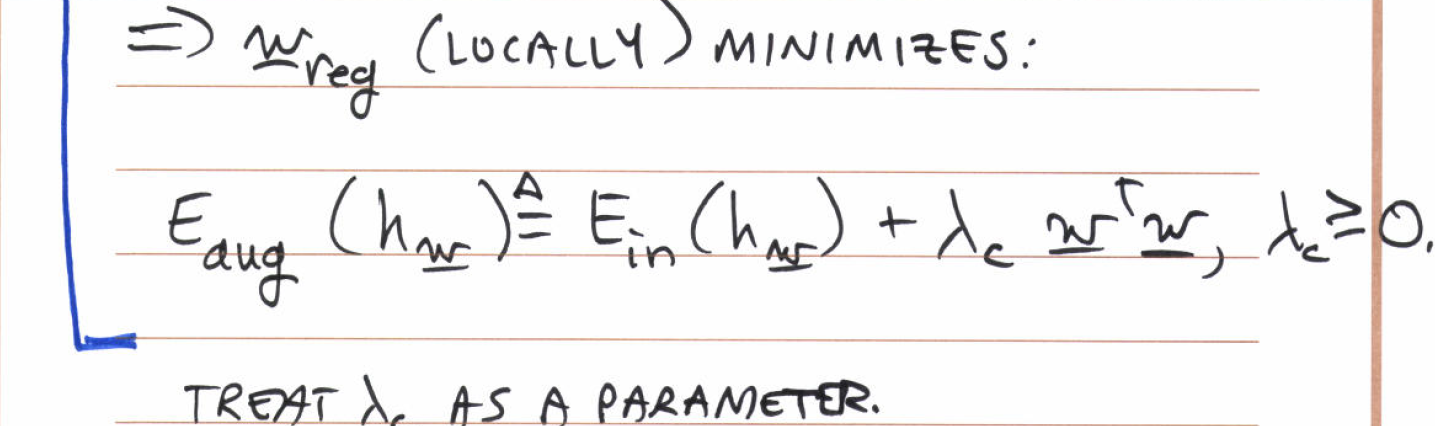 => w̲_reg (LOCALLY) MINIMIZES:
E_aug (h_w̲) ≜ E_in (h_w̲) + λ_c w̲ᵀ w̲, λ_c ≥ 0.
TREAT λ_c AS A PARAMETER.